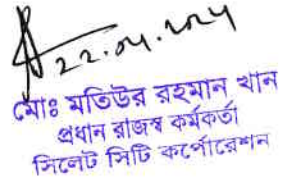 22.04.2024
মোঃ মতিউর রহমান খান
প্রধান রাজস্ব কর্মকর্তা
সিলেট সিটি কর্পোরেশন